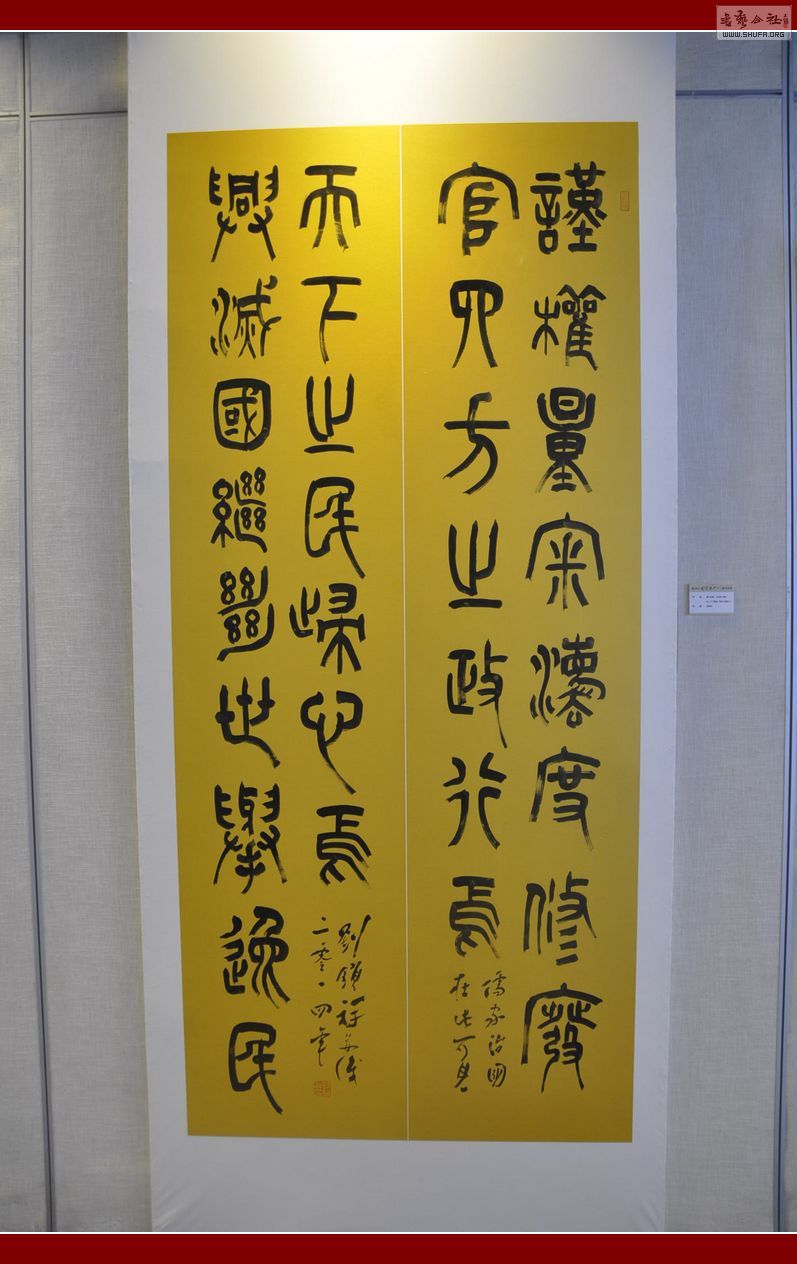 謹權量宷灋度修廢
官四方之政行焉
儒家治國
在此可見
興滅國繼絕世舉逸民
天下之民歸心焉
劉鎖祥并識
二零一四年
書藝公社
WWW.SHUFA.ORG